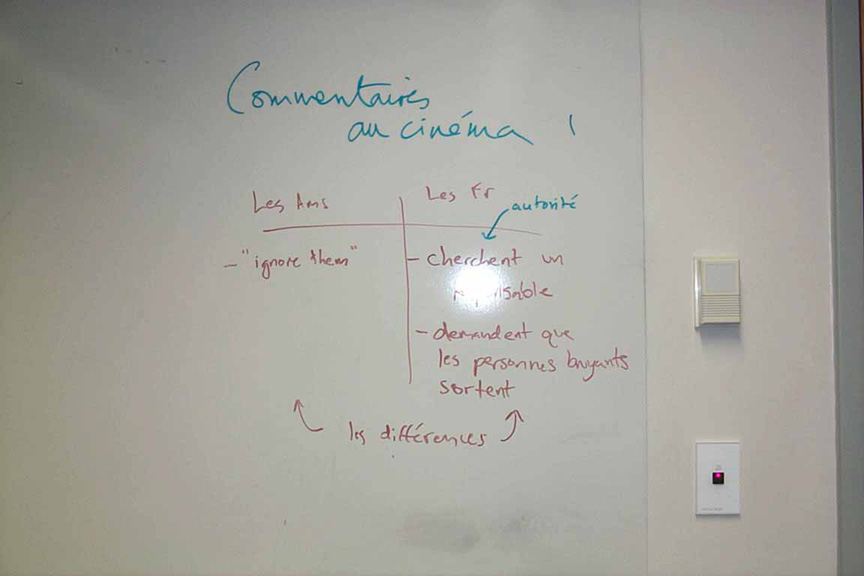 Commentaires
au cinéma !
Les Ams
Les Fr
autorité
- "ignore them"
- cherchent un
responsable
- demandent que
les personnes bruyants
sortent
les différences